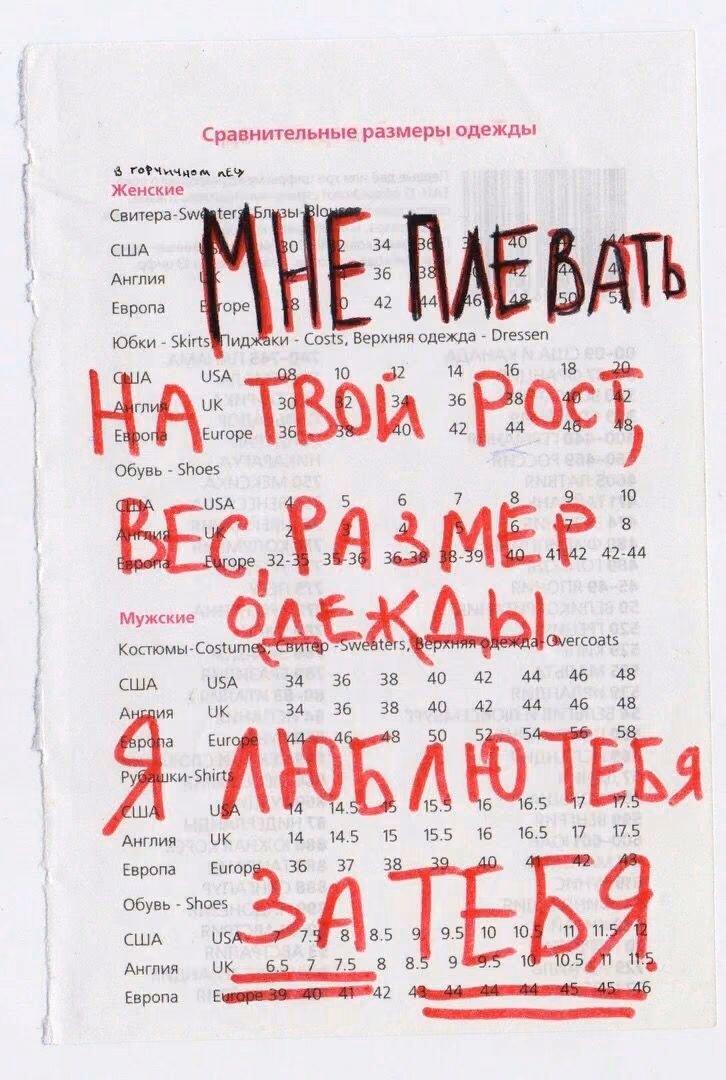 Сравнительные размеры одежды
в горчичном лесу
Женские
Свитера-Sweaters, Блузы-Blouses
МНЕ ПЛЕВАТЬ
США USA 30 34 36 40 42 44
Англия UK 36 38 42 44
Европа Europe 42 44 46 48 50 52
Юбки - Skirts, Пиджаки - Costs, Верхняя одежда - Dressen
США USA 08 10 12 14 16 18 20
НА ТВОЙ РОСТ,
Англия UK 30 32 34 36 38 40 42
Европа Europe 36 38 40 42 44 46 48
Обувь - Shoes
США USA 4 5 6 7 8 9 10
ВЕС, РАЗМЕР
Англия UK 2 3 4 5 6 7 8
Европа Europe 32-35 35-36 36-38 38-39 40 41-42 42-44
ОДЕЖДЫ.
Мужские
Костюмы-Costumes, Свитер -Sweaters, Верхняя одежда-Overcoats
США USA 34 36 38 40 42 44 46 48
Англия UK 34 36 38 40 42 44 46 48
Европа Europe 44 46 48 50 52 54 56 58
Я ЛЮБЛЮ ТЕБЯ
Рубашки-Shirts
США USA 14 14.5 15 15.5 16 16.5 17 17.5
Англия UK 14 14.5 15 15.5 16 16.5 17 17.5
Европа Europe 36 37 38 39 40 41 42 43
Обувь - Shoes
ЗА ТЕБЯ.
США USA 7 7.5 8 8.5 9 9.5 10 10.5 11 11.5 12
Англия UK 6.5 7 7.5 8 8.5 9 9.5 10 10.5 11 11.5
Европа Europe 39 40 41 42 43 44 44 44 45 45 46